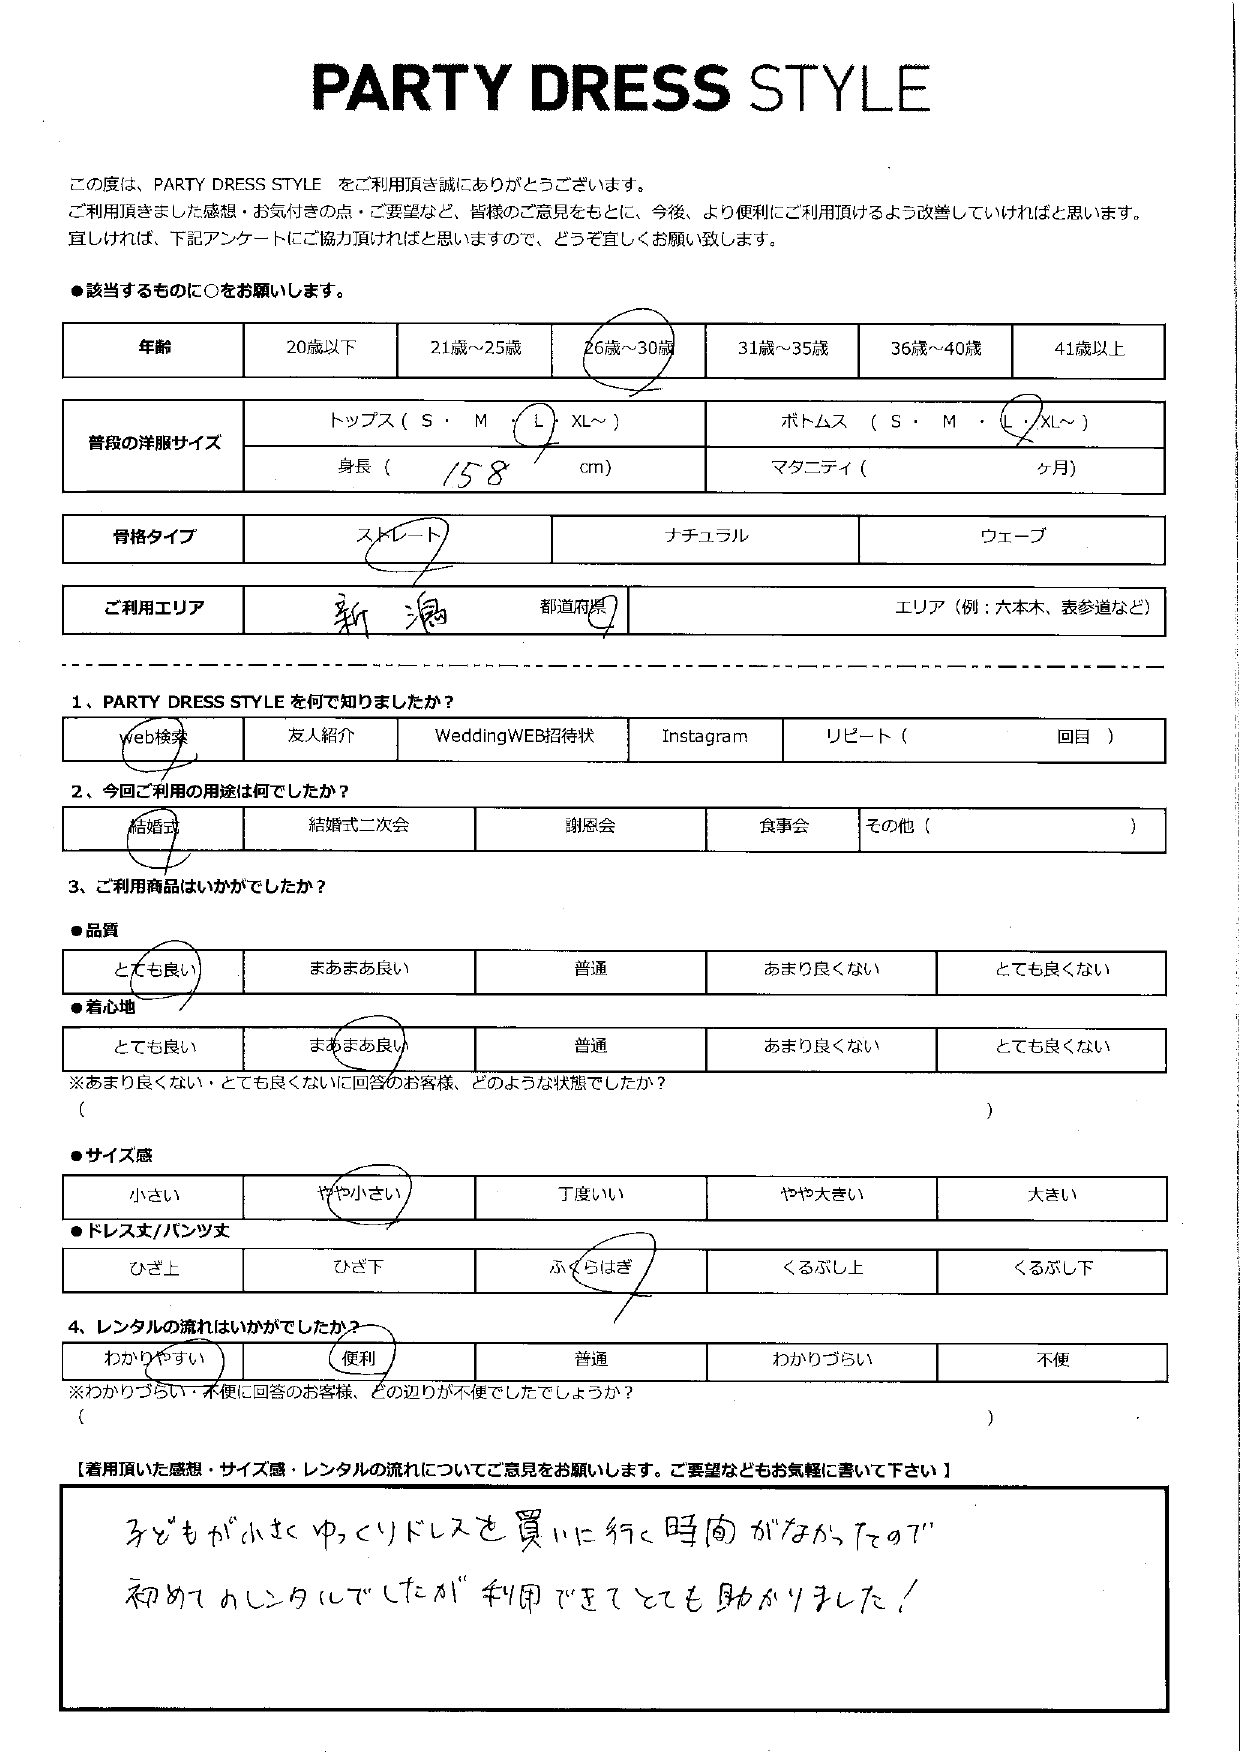 PARTY DRESS STYLE
この度は、PARTY DRESS STYLE をご利用頂き誠にありがとうございます。
ご利用頂きました感想・お気付きの点・ご要望など、皆様のご意見をもとに、今後、より便利にご利用頂けるよう改善していければと思います。
宜しければ、下記アンケートにご協力頂ければと思いますので、どうぞ宜しくお願い致します。
●該当するものに○をお願いします。
年齢 20歳以下 21歳～25歳 26歳～30歳 31歳～35歳 36歳～40歳 41歳以上
普段の洋服サイズ
トップス ( S ・ M ・ L ・ XL～ ) ボトムス ( S ・ M ・ L ・ XL～ )
身長 ( 158 cm) マタニティ ( ヶ月)
骨格タイプ ストレート ナチュラル ウェーブ
ご利用エリア 新潟 都道府県 エリア（例：六本木、表参道など）
1、PARTY DRESS STYLE を何で知りましたか？
web検索 友人紹介 WeddingWEB招待状 Instagram リピート（ 回目 ）
2、今回ご利用の用途は何でしたか？
結婚式 結婚式二次会 謝恩会 食事会 その他（ ）
3、ご利用商品はいかがでしたか？
●品質
とても良い まあまあ良い 普通 あまり良くない とても良くない
●着心地
とても良い まあまあ良い 普通 あまり良くない とても良くない
※あまり良くない・とても良くないに回答のお客様、どのような状態でしたか？
( )
●サイズ感
小さい やや小さい 丁度いい やや大きい 大きい
●ドレス丈/パンツ丈
ひざ上 ひざ下 ふくらはぎ くるぶし上 くるぶし下
4、レンタルの流れはいかがでしたか？
わかりやすい 便利 普通 わかりづらい 不便
※わかりづらい・不便に回答のお客様、どの辺りが不便でしたでしょうか？
( )
【着用頂いた感想・サイズ感・レンタルの流れについてご意見をお願いします。ご要望などもお気軽に書いて下さい】
子どもが小さくゆっくりドレスを買いに行く時間がなかったので
初めてのレンタルでしたが利用できてとても助かりました！